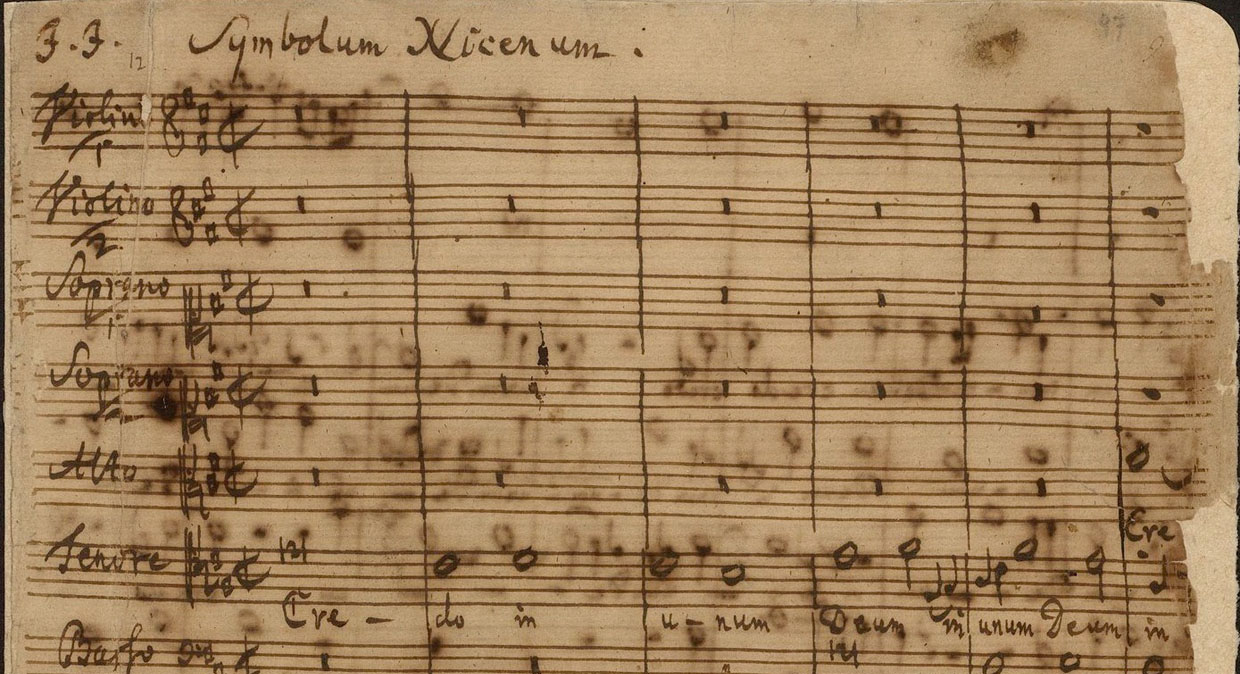 J. J. Symbolum Nicenum :
97
12
Violino
1
Violino
2
Soprano
1
Soprano
2
Alto
Cre
Tenore
Cre - do in u - num Deum in unum Deum in
Basso